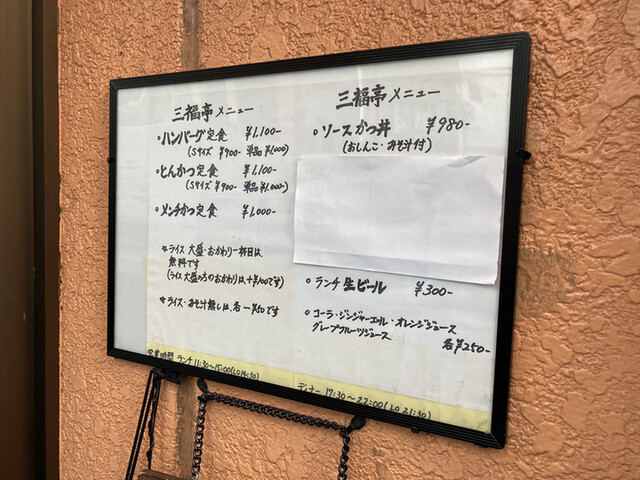 三福亭メニュー
•ハンバーグ定食 ¥1,100-
(Sサイズ ¥900- 単品 ¥1,000)
•とんかつ定食 ¥1,100-
(Sサイズ ¥900- 単品 ¥1,000-)
•メンチかつ定食 ¥1,000-
☆ライス 大盛・おかわり一杯目は
無料です
(ライス大盛の方のおかわりは、+¥100です)
☆ライス・みそ汁無しは、各-¥50です
営業時間 ランチ 11:30~15:00(LO14:30)
三福亭メニュー
○ソースかつ丼 ¥980-
(おしんこ・みそ汁付)
○ランチ生ビール ¥300-
○コーラ・ジンジャーエール・オレンジジュース
グレープフルーツジュース 各¥250-
ディナー 17:30~22:00(LO 21:30)